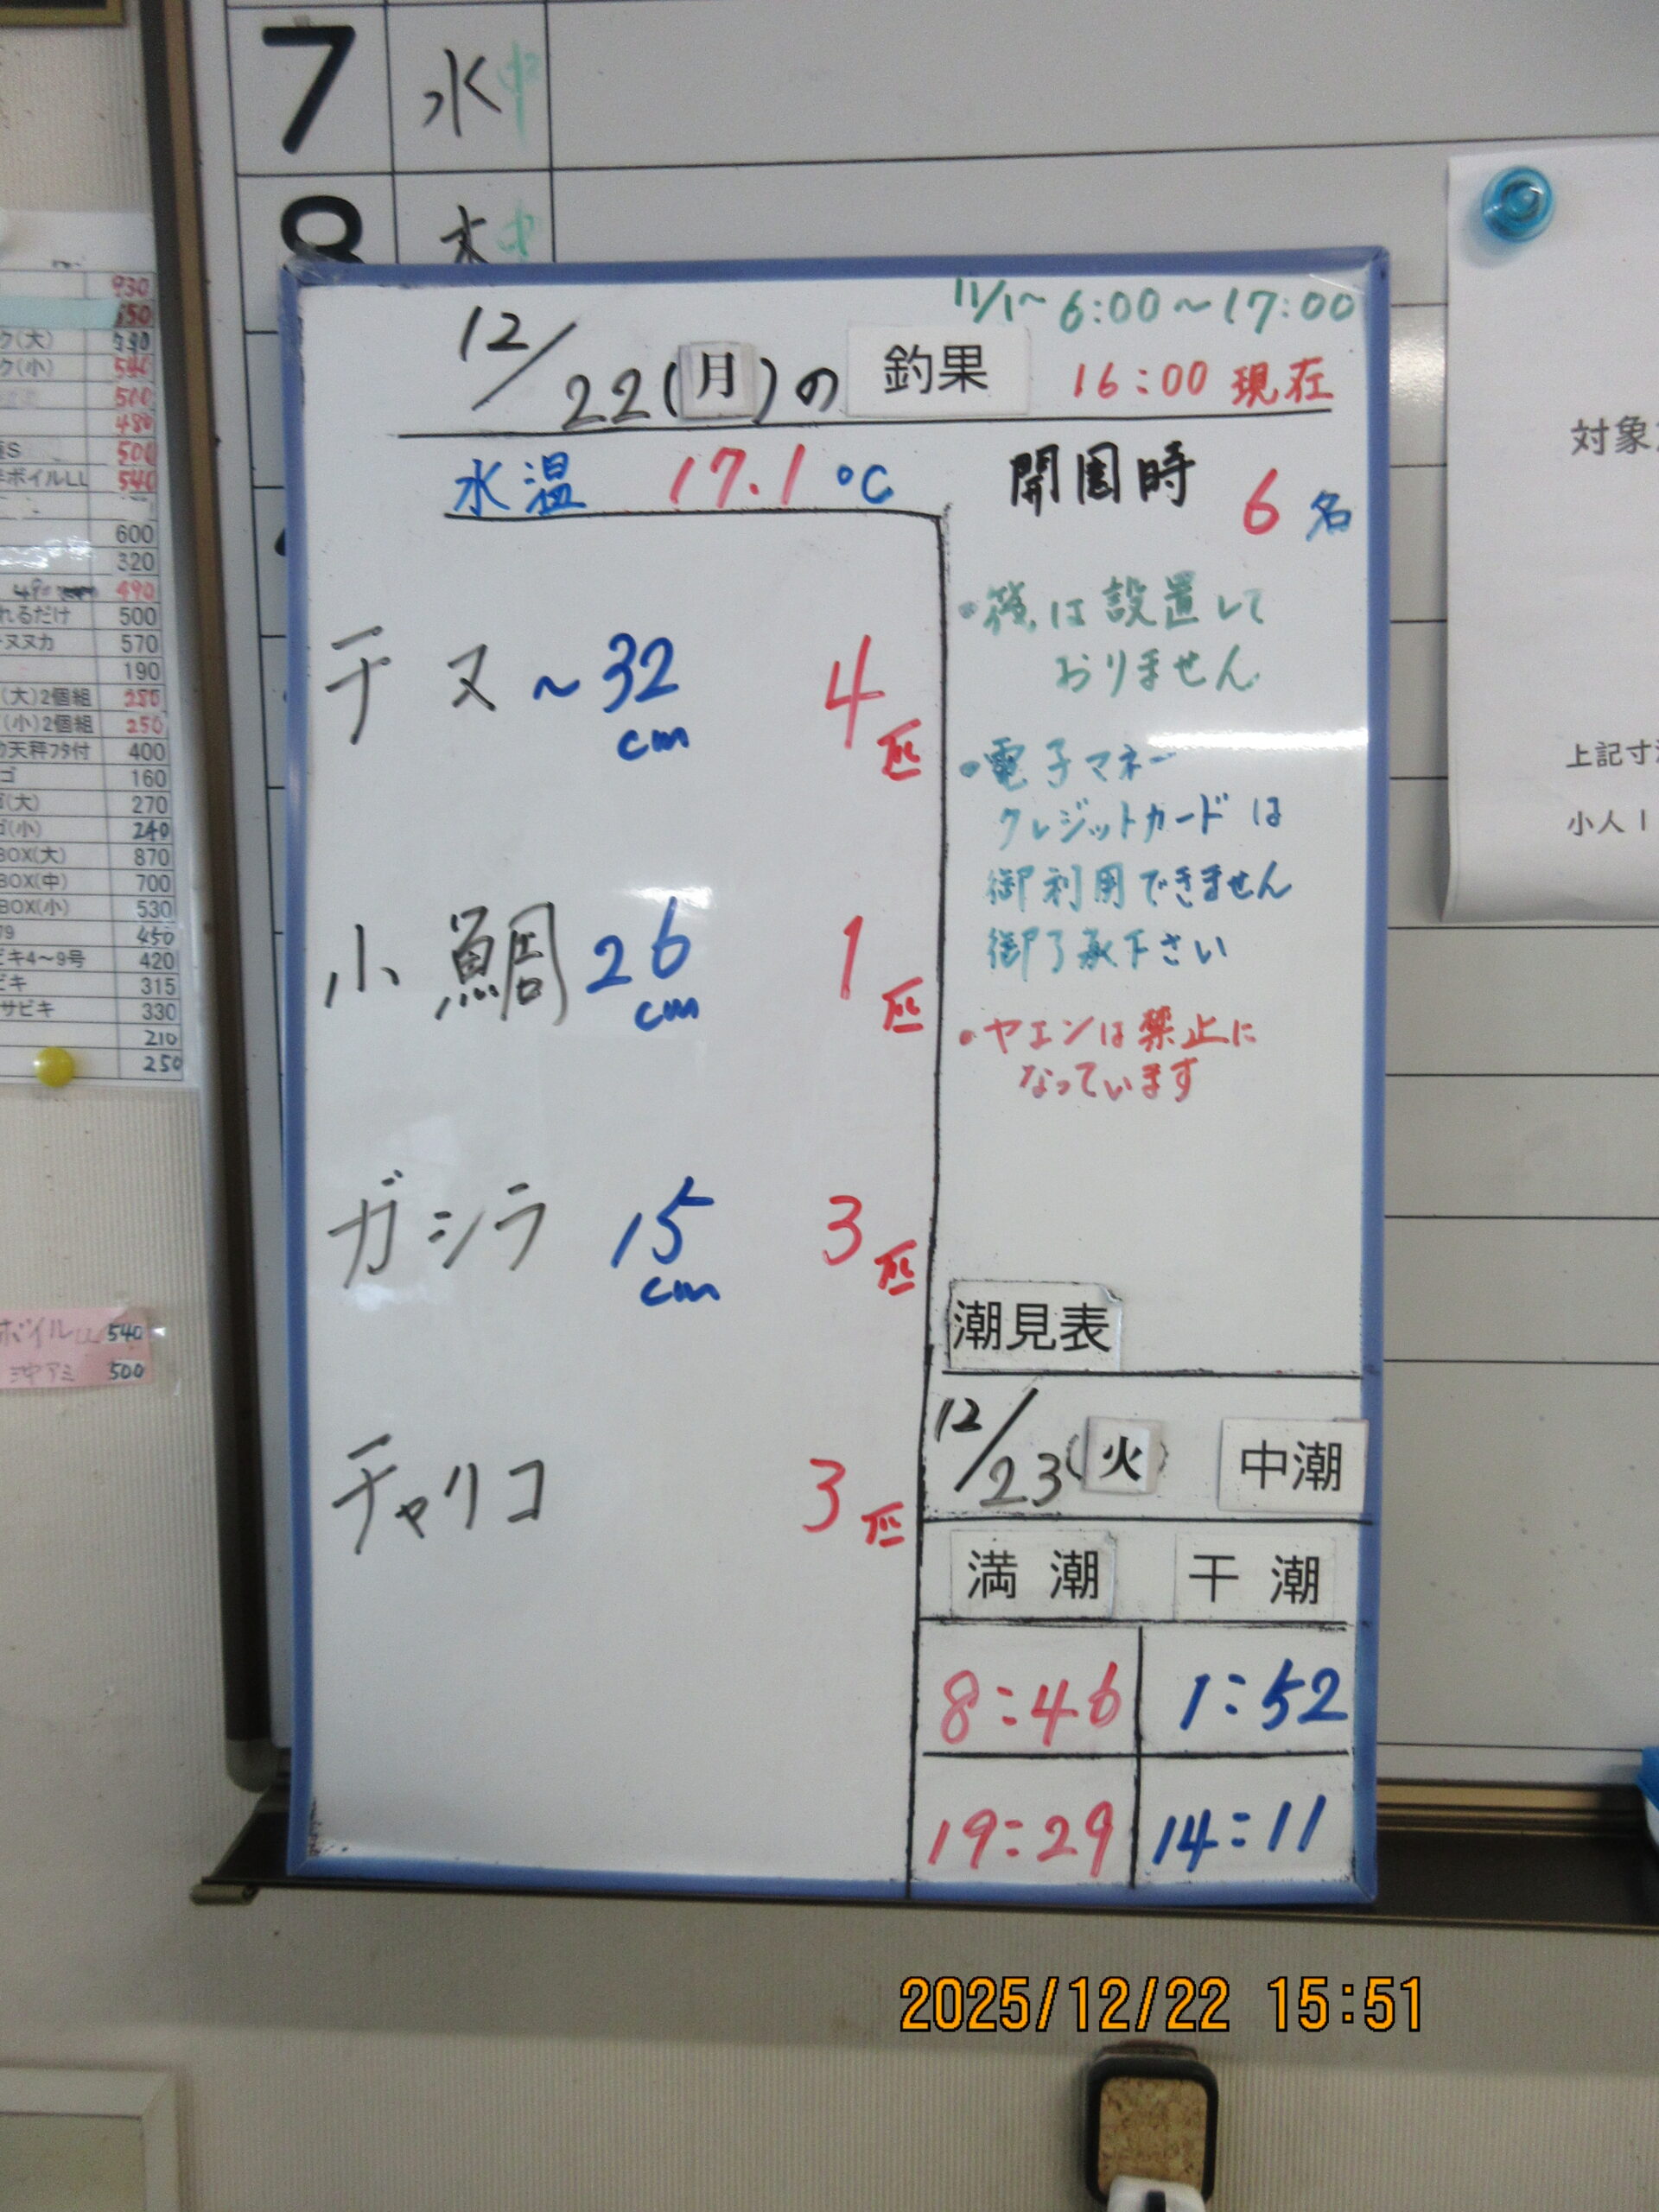 7 水 中
8 木 中
11/1~ 6:00~17:00
12/22(月)の 釣果 16:00 現在
水温 17.1℃
開園時 6名
チヌ ~32cm 4匹
小鯛 26cm 1匹
ガシラ 15cm 3匹
チャリコ 3匹
・筏は設置して
おりません
・電子マネー
クレジットカードは
御利用できません
御了承下さい
・ヤエンは禁止に
なっています
潮見表
12/23(火) 中潮
満潮 干潮
8:46 1:52
19:29 14:11
930
ク(大)
ク(小) 540
500
480
S 500
ボイルLL 540
600
320
490
れるだけ 500
ヌカ 570
190
(大)2個組 280
(小)2個組 250
天秤フタ付 400
ゴ 160
(大) 270
(小) 240
BOX(大) 870
BOX(中) 700
BOX(小) 530
79 450
キ4~9号 420
ビキ 315
サビキ 330
210
250
ボイルLL 540
沖アミ 500
対象
上記寸
小人
2025/12/22 15:51